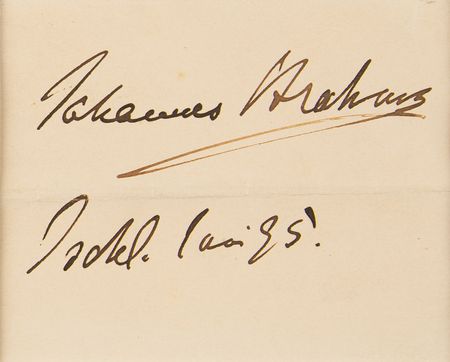 Johannes Brahms
Ischl. Juni 95.